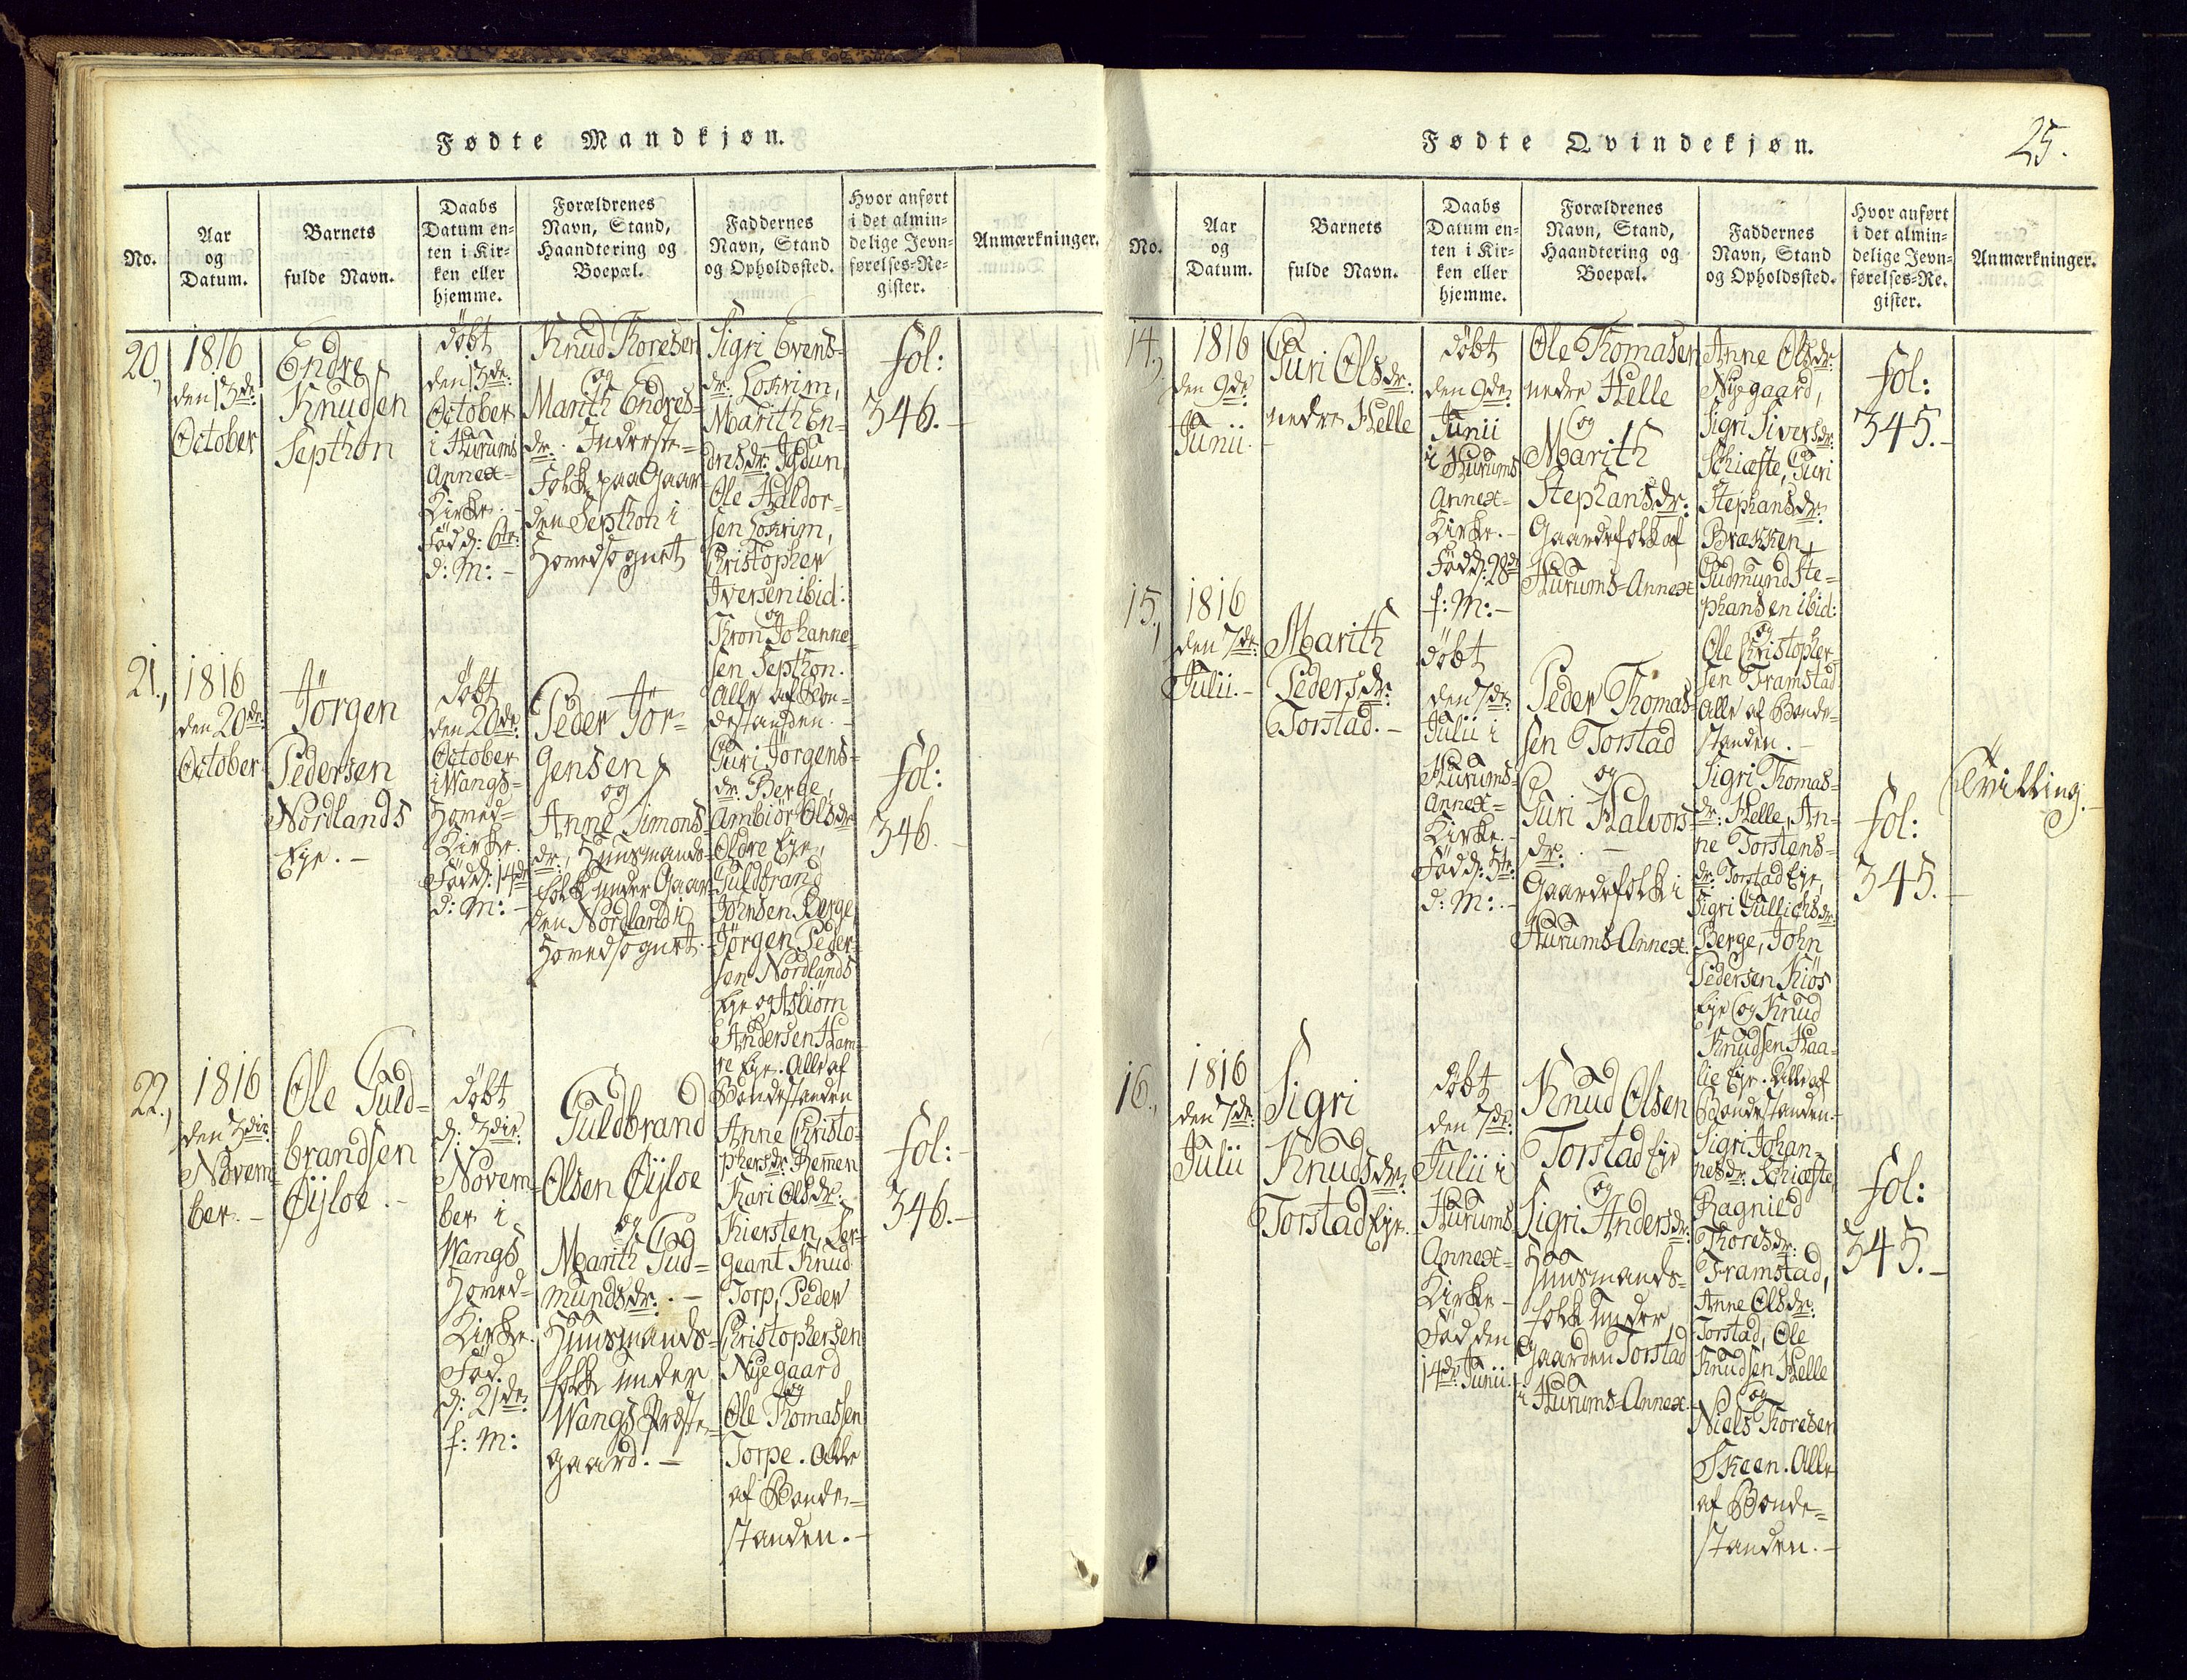 Fødte Mandkjøn.
No.
Aar
og
Datum.
Barnets
fulde Navn.
Daabs
Datum en-
ten i Kir-
ken eller
hjemme.
Forældrenes
Navn, Stand,
Haandtering og
Boepæl.
Faddernes
Navn, Stand
og Opholdssted.
Hvor anført
i det almin-
delige Jevn-
førelses-Re-
gister.
Anmærkninger.
20.,
1816
den 13de:
October
Endre
Knudsen
Septhon
döbt
den 13de:
October
i Hurums
Annex-
Kirke.-
Föd d: 6te:
d: M:-
Knud Thoresen
og
Marith Endres-
dr: Inderste-
Folk paa Gaar
den Septhon i
Hovedsognet
Sigri Evens-
dr: Lokrim,
Marith En-
dresdr: Igdun,
Ole Haldor-
sen Lokrim,
Christopher
Iversen ibid:
og
Thron Johanne-
sen Septhon.
Alle af Bon-
destanden.-
fol:
346.-
21.,
1816
den 20de:
October
Jörgen
Pedersen
Nordlands
Eje.-
döbt
den 20de:
October
i Wangs-
Hoved-
Kirke.
Föd d: 14de
d: M:-
Peder Jör-
gensen
og
Anne Simons-
dr:, Huusmands-
folk under Gaar
den Nordland i
Hovedsognet.
Guri Jörgens-
dr: Berge,
Ambiör Olsdr:
Oldre Eje,
Guldbrand
Johnsen Berge,
Jörgen Peder-
sen Nordlands
Eje og Asbiörn
Andersen Ham-
re Eje. Alle af
Bondestanden
fol:
346.-
22.,
1816
den 3die:
Novem-
ber.-
Ole Guld-
brandsen
Öijloe.-
döbt
d: 3die:
Novem-
ber i
Wangs
Hoved-
Kirke.
Föd.
d: 21de:
f: M:
Guldbrand
Olsen Öijloe
og
Marith Gud-
mundsdr:.-
Huusmands-
folk under
Wangs Præste-
gaard.-
Anne Christo-
phersdr: Remen
Kari Olsdr:
Kiersten, Ser-
geant Knud
Torp, Peder
Christophersen
Nÿegaard
og
Ole Thomassen
Torpe. Alle
af Bonde-
standen.-
fol:-
346.-
Fødte Qvindekjøn.
25.
No.
Aar
og
Datum.
Barnets
fulde Navn.
Daabs
Datum en-
ten i Kir-
ken eller
hjemme.
Forældrenes
Navn, Stand,
Haandtering og
Boepæl.
Faddernes
Navn, Stand
og Opholdssted.
Hvor anført
i det almin-
delige Jevn-
førelses-Re-
gister.
Anmærkninger.
14.,
1816
den 9de
Junii.
Guri Olsdr:
nedre Helle
döbt
den 9de:
Junii
i Hurums
Annex-
Kirke.-
Föd d: 28de
f: M:-
Ole Thomasen
nedre Helle
og
Marith
Stephansdr:
Gaardefolk af
Hurums-Annex
Anne Olsdr:
Nÿegaard,
Sigri Siversdr:
Schiefte, Guri
Stephansdr:
Brækken,
Gudmund Ste-
phansen ibid:
og
Ole Christopher-
sen Framstad.
Alle af Bonde-
standen.-
fol:
345.-
15.,
1816
den 7de:
Julii.-
Marith
Pedersdr:
Torstad.-
döbt
den 7de:
Julii i
Hurums-
Annex-
Kirke.-
Föd d: 3de:
d: M:.-
Peder Thomas-
sen Torstad
og
Guri Halvors-
dr:.-
Gaardefolk i
Hurums-Annex.
Sigri Thomas-
dr: Helle, An-
ne Torstens-
dr: Torstad Eje,
Sigri Gullichsdr:
Berge, John
Pedersen Kiös
Eje og Knud
Knudsen Haa-
lie Eje. Alle af
Bondestanden.-
fol:
345.-
Tvilling.-
16.,
1816
den 7de:
Julii
Sigri
Knudsdr:
Torstad Eje.
döbt
den 7de:
Julii i
Hurums
Annex-
Kirke-
Föd den
14de: Junii.
Knud Olsen
Torstad Eje
og
Sigri Andersdr:
Huusmands-
folk under
Gaarden Torstad
i Hurums-Annex.
Sigri Johan-
nesdr: Schiefte,
Ragnild
Thoresdr:
Framstad,
Anne Olsdr:
Torstad, Ole
Knudsen Helle
og
Niels Thoresen
Skeen. Alle
af Bonde-
standen.-
fol:
345.-